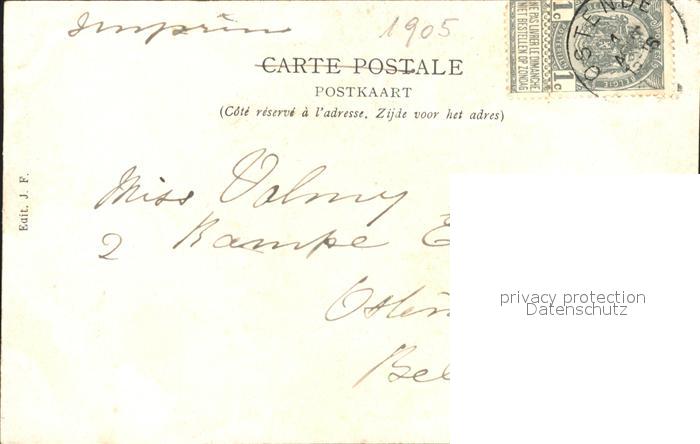 Imprimé
1905
CARTE POSTALE
POSTKAART
(Côté réservé à l'adresse. Zijde voor het adres)
OSTENDE
NE PAS LIVRER LE DIMANCHE
NIET BESTELLEN OP ZONDAG
1c 1c
Edit. J. F.
Miss Valmy
2 Rampe E
Osten
Bel
privacy protection
Datenschutz